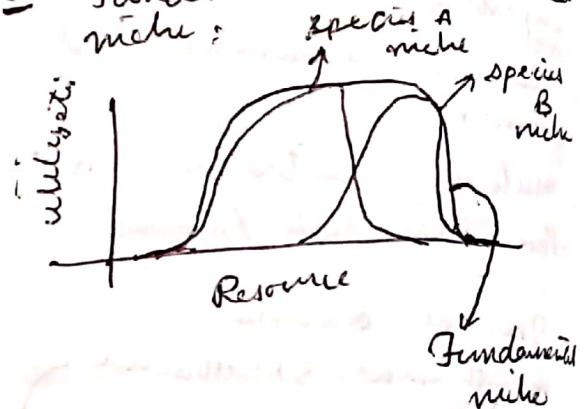 niche :
species A
niche
species
B
niche
utilizati
Resource
Fundamental
niche